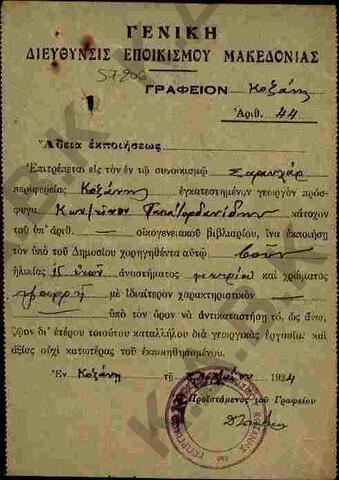 ΓΕΝΙΚΗ
ΔΙΕΥΘΥΝΣΙΣ ΕΠΟΙΚΙΣΜΟΥ ΜΑΚΕΔΟΝΙΑΣ
57806
ΓΡΑΦΕΙΟΝ Κοζάνης
Ἀριθ. 44
Ἄδεια ἐκποιήσεως
Ἐπιτρέπεται εἰς τὸν ἐν τῷ συνοικισμῷ Σαραχλάρ
περιφερείας Κοζάνης ἐγκατεστημένον γεωργὸν πρόσ-
φυγα Κων/τῖνον Παπαϊορδανίδην κάτοχον
τοῦ ὑπ' ἀριθ. — οἰκογενειακοῦ βιβλιαρίου, ἵνα ἐκποιήσῃ
τὸν ὑπὸ τοῦ Δημοσίου χορηγηθέντα αὐτῷ βοῦν
ἡλικίας 15 ἐτῶν ἀναστήματος μετρίου καὶ χρώματος
μὲ ἰδιαίτερον χαρακτηριστικὸν
ὑπὸ τὸν ὅρον νὰ ἀντικαταστήσῃ τὸ, ὡς ἄνω,
ζῷον δι' ἑτέρου τοιούτου καταλλήλου διὰ γεωργικὰς ἐργασίας καὶ
ἀξίας οὐχὶ κατωτέρας τοῦ ἐκποιηθησομένου.
Ἐν Κοζάνῃ τῇ 1924
Ὁ Προϊστάμενος τοῦ Γραφείου